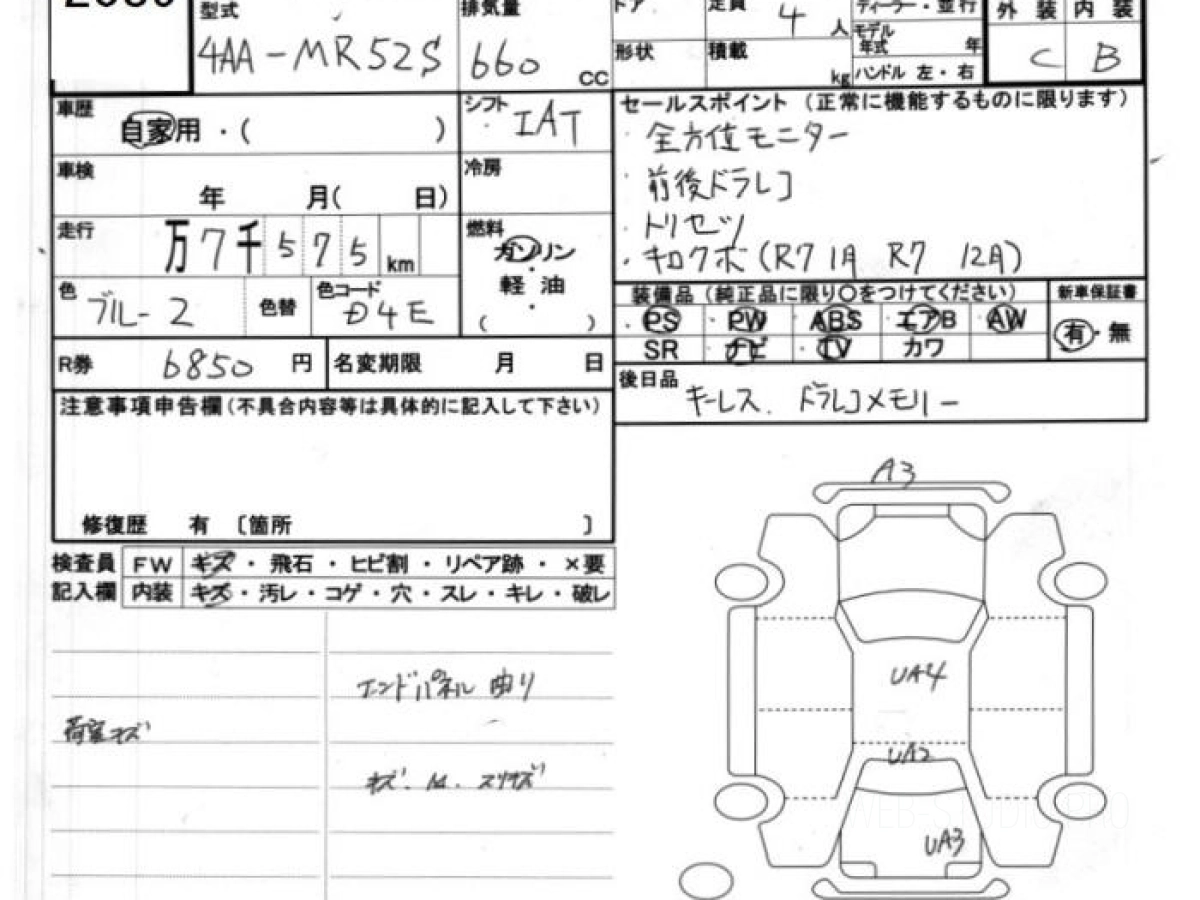 型式 排気量 ドア 定員 4 人 ディーラー・並行 外装 内装
4AA-MR52S 660 cc 形状 積載 kg モデル年式 年 C B
ハンドル 左・右
車歴 自家用・( ) シフト IAT セールスポイント (正常に機能するものに限ります)
・全方位モニター
車検 年 月( 日) 冷房 ・前後ドラレコ
走行 万7千575km 燃料 ガソリン・軽油・( ) ・トリセツ
・キロクボ(R7 1月 R7 12月)
色 ブルー2 色替 色コード D4E
装備品 (純正品に限り○をつけてください) 新車保証書
・PS ・PW ・ABS ・エアB ・AW 有・無
SR ・ナビ ・TV カワ
R券 6850 円 名変期限 月 日
後日品 キーレス. ドラレコメモリー
注意事項申告欄(不具合内容等は具体的に記入して下さい)
修復歴 有 〔箇所 〕
検査員記入欄 FW キズ・飛石・ヒビ割・リペア跡・×要
内装 キズ・汚レ・コゲ・穴・スレ・キレ・破レ
エンドパネル 曲り
荷室キズ
A3
UA4
UA2
UA3